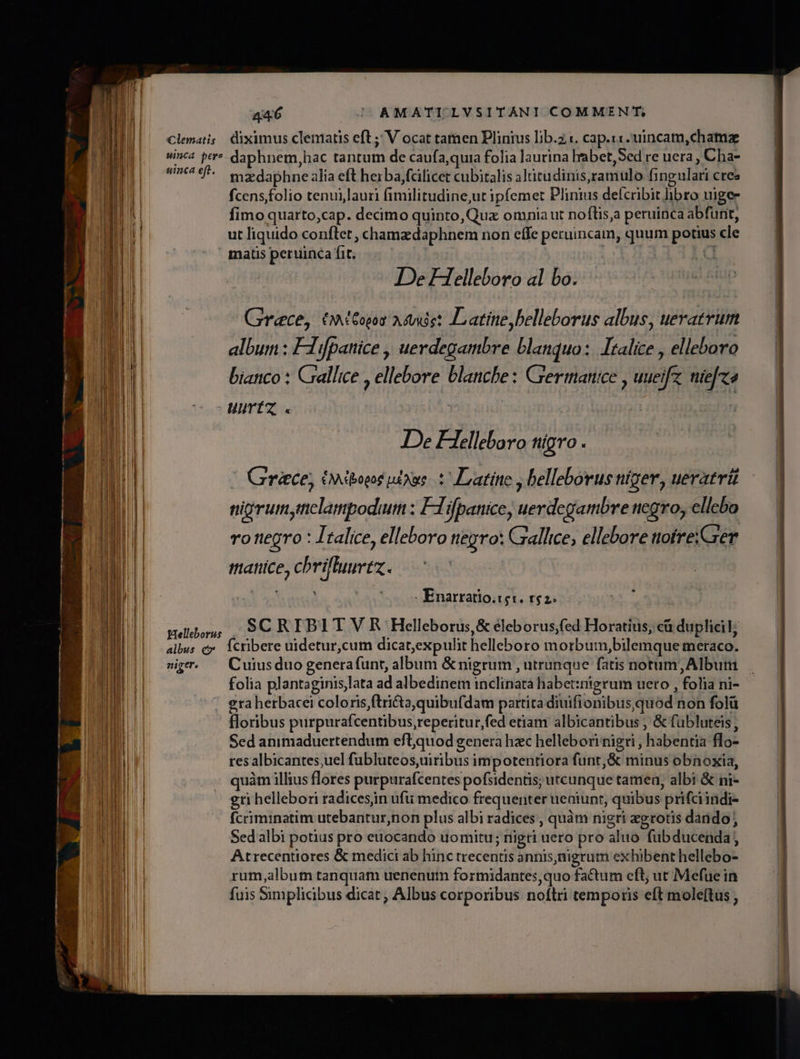 446 AMATI LVSITANI COMMENT,
Clematis
uinca per⸗
uinca eſt.
diximus clematis eſt ; Vocat tamen Plinius lib.21. cap.11. uincam, chamæ
daphnem, hac tantum de cauſa, quia folia laurina habet, Sed re uera, Cha-
mædaphne alia eſt herba, ſcilicet cubitalis altitudinis, ramulo ſingulari cre⸗
ſcens, folio tenui, lauri ſimilitudine, ut ipſemet Plinius deſcribit libro uige⸗
ſimo quarto, cap. decimo quinto, Quæ omnia ut noſtis, a peruinca abſunt,
ut liquido conſtet, chamædaphnem non eſſe peruincam, quum potius cle
matis peruinca ſit.
De Helleboro al bo.
Græce, ἐλλέβορος λευκός: Latine, helleborus albus, ueratrum
album: Hiſpanice, uerdegambre blanquo: Italice, elleboro
bianco: Gallice, ellebore blanche: Germanice, uueiſz nieſza
uurtz.
De Helleboro nigro.
Græce, ἐλλέβορος μέλας : Latine, helleborus niger, ueratrū
nigrum, melampodium: Hiſpanice, uerdegambre negro, ellebo
ro negro: Italice, elleboro negro: Gallice, ellebore noire: Ger
manice, chriſtuurtz.
Enarratio.151. 152.
Helleborus
albus &
niger.
SCRIBITVR Helleborus, & eleborus, ſed Horatius, cū duplici l,
ſcribere uidetur, cum dicat, expulit helleboro morbum, bilemque meraco.
Cuius duo genera ſunt, album & nigrum, utrunque ſatis notum, Album
folia plantaginis, lata ad albedinem inclinata habet: nigrum uero, folia ni-
gra herbacei coloris, ſtricta, quibuſdam partita diuiſionibus, quod non ſolū
floribus purpuraſcentibus, reperitur, ſed etiam albicantibus, & ſubluteis,
Sed animaduertendum eſt, quod genera hæc hellebori nigri, habentia flo-
res albicantes, uel ſubluteos, uiribus impotentiora ſunt, & minus obnoxia,
quàm illius flores purpuraſcentes poſsidentis; utcunque tamen, albi & ni-
gri hellebori radices, in uſu medico frequenter ueniunt, quibus priſci indi-
ſcriminatim utebantur, non plus albi radices, quàm nigri ægrotis dando,
Sed albi potius pro euocando uomitu; nigri uero pro aluo ſubducenda,
At recentiores & medici ab hinc trecentis annis, nigrum exhibent hellebo-
rum, album tanquam uenenum formidantes, quo factum eſt, ut Meſue in
ſuis Simplicibus dicat, Albus corporibus noſtri temporis eſt moleſtus,